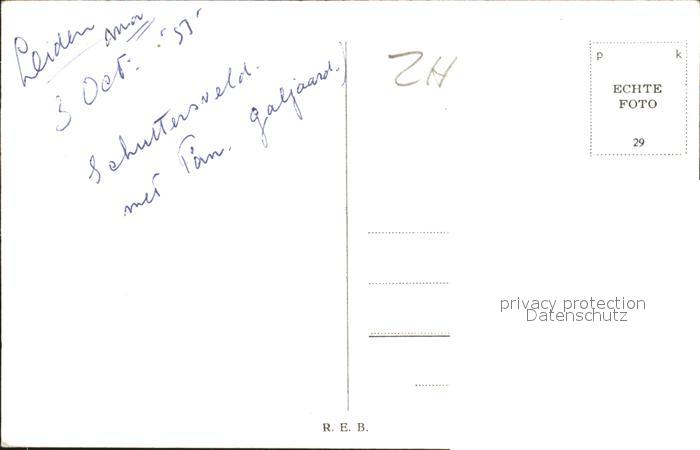 Leiden
3 Oct. '53'
Schuttersveld.
met Fam. Galjaard.
ZH
p k
ECHTE
FOTO
29
privacy protection
Datenschutz
R. E. B.